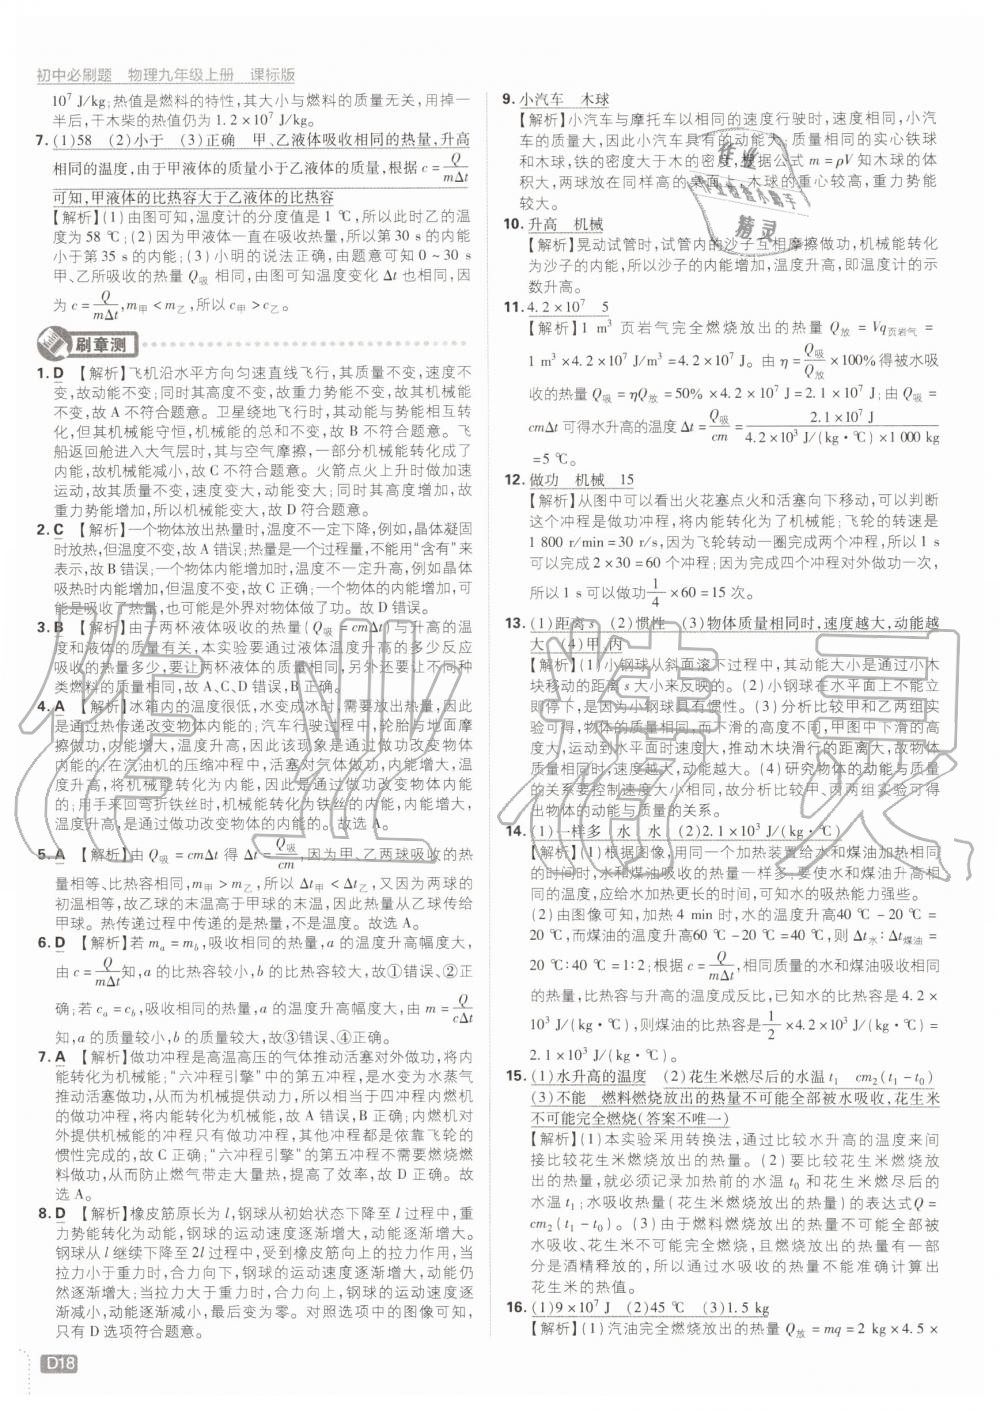 初中必刷题 物理九年级上册 课标版
10⁷ J/kg;热值是燃料的特性,其大小与燃料的质量无关,用掉一
半后,干木柴的热值仍为1.2×10⁷ J/kg。
7. (1)58 (2)小于 (3)正确 甲、乙液体吸收相同的热量,升高
相同的温度,由于甲液体的质量小于乙液体的质量,根据c=Q/(mΔt)
可知,甲液体的比热容大于乙液体的比热容
【解析】(1)由图可知,温度计的分度值是1 ℃,所以此时乙的温
度为58 ℃;(2)因为甲液体一直在吸收热量,所以第30 s的内能
小于第35 s的内能;(3)小明的说法正确,由题意可知0~30 s
甲、乙所吸收的热量Q吸相同,由图可知温度变化Δt也相同,因
为c=Q/(mΔt),m甲<m乙,所以c甲>c乙。
刷章测
1. D 【解析】飞机沿水平方向匀速直线飞行,其质量不变,速度不
变,故动能不变;同时其高度不变,故重力势能不变,故其机械能
不变,故A不符合题意。卫星绕地飞行时,其动能与势能相互转
化,但其机械能守恒,机械能的总和不变,故B不符合题意。飞
船返回舱进入大气层时,其与空气摩擦,一部分机械能转化成了
内能,故机械能减小,故C不符合题意。火箭点火上升时做加速
运动,故其质量不变,速度变大,动能变大;同时其高度增加,故
重力势能增加,所以机械能变大,故D符合题意。
2. C 【解析】一个物体放出热量时,温度不一定下降,例如,晶体凝固
时放热,但温度不变,故A错误;热量是一个过程量,不能用“含有”来
表示,故B错误;物体内能增加时,温度不一定升高,例如晶体
吸热时内能增加,但温度不变,故C正确;一个物体的内能增加,可
能是吸收了热量,也可能是外界对物体做了功。故D错误。
3. B 【解析】由于两杯液体吸收的热量(Q吸=cmΔt)与升高的温
度和液体的质量有关,本实验要通过液体温度升高的多少反应
吸收的热量多少,要让两杯液体的质量相同,另外还要让不同种
类燃料的质量相同,故A、C、D错误,B正确。
4. A 【解析】冰箱内的温度很低,水变成冰时,需要放出热量,因此
是通过热传递改变物体内能的;汽车行驶过程中,轮胎与地面摩
擦做功,内能增大,温度升高,因此该现象是通过做功改变物体
内能的;在汽油机的压缩冲程中,活塞对气体做功,内能增大,温
度升高,将机械能转化为内能,因此是通过做功改变物体内能
的;用手来回弯折铁丝时,机械能转化为铁丝的内能,内能增大,
温度升高,是通过做功改变物体的内能的。故选A。
5. A 【解析】由Q吸=cmΔt得Δt=Q吸/(cm),因为甲、乙两球吸收的热
量相等、比热容相同,m甲>m乙,所以Δt甲<Δt乙,又因为两球的
初温相等,故乙球的末温高于甲球的末温,因此热量从乙球传给
甲球。热传递过程中传递的是热量,不是温度。故选A。
6. D 【解析】若mₐ=m_b,吸收相同的热量,a的温度升高幅度大,
由c=Q/(mΔt)知,a的比热容较小,b的比热容较大,故①错误、②正
确;若cₐ=c_b,吸收相同的热量,a的温度升高幅度大,由m=Q/(cΔt)
知,a的质量较小,b的质量较大,故③错误、④正确。
7. A 【解析】做功冲程是高温高压的气体推动活塞对外做功,将内
能转化为机械能;“六冲程引擎”中的第五冲程,是水变为水蒸气
推动活塞做功,从而为机械提供动力,所以相当于四冲程内燃机
的做功冲程,将内能转化为机械能,故A错误,B正确;内燃机对
外提供机械能的冲程只有做功冲程,其他冲程都是依靠飞轮的
惯性完成的,故C正确;“六冲程引擎”的第五冲程不需要燃烧燃
料做功,从而防止燃气带走大量热,提高了效率,故D正确。故
选A。
8. D 【解析】橡皮筋原长为l,钢球从初始状态下降至l过程中,重
力势能转化为动能,钢球的运动速度逐渐增大,动能逐渐增大。
钢球从l继续下降至2l过程中,受到橡皮筋向上的拉力作用,当
拉力小于重力时,合力向下,钢球的运动速度逐渐增大,动能仍
然逐渐增大;当拉力大于重力时,合力向上,钢球的运动速度逐
渐减小,动能逐渐减小,最后变为零。对照选项中的图像可知,
只有D选项符合题意。
D18
9. 小汽车 木球
【解析】小汽车与摩托车以相同的速度行驶时,速度相同,小汽
车的质量大,因此小汽车具有的动能大;质量相同的实心铁球
和木球,铁的密度大于木的密度,根据公式m=ρV知木球的体
积大,两球放在同样高的桌面上,木球的重心较高,重力势能
较大。
10. 升高 机械
【解析】晃动试管时,试管内的沙子互相摩擦做功,机械能转化
为沙子的内能,所以沙子的内能增加,温度升高,即温度计的示
数升高。
11. 4.2×10⁷ 5
【解析】1 m³页岩气完全燃烧放出的热量Q放=Vq页岩气=
1 m³×4.2×10⁷ J/m³=4.2×10⁷ J。由η=Q吸/Q放×100%得被水吸
收的热量Q吸=ηQ放=50%×4.2×10⁷ J=2.1×10⁷ J;由Q吸=
cmΔt可得水升高的温度Δt=Q吸/(cm)=2.1×10⁷ J/(4.2×10³ J/(kg·℃)×1 000 kg)
=5 ℃。
12. 做功 机械 15
【解析】从图中可以看出火花塞点火和活塞向下移动,可以判断
这个冲程是做功冲程,将内能转化为了机械能;飞轮的转速是
1 800 r/min=30 r/s,因为飞轮转动一圈完成两个冲程,所以1 s
可以完成2×30=60个冲程;因为完成四个冲程对外做功一次,
所以1 s可以做功1/4×60=15次。
13. (1)距离s (2)惯性 (3)物体质量相同时,速度越大,动能越
大 (4)甲、丙
【解析】(1)小钢球从斜面滚下过程中,其动能大小是通过小木
块移动的距离s大小来反映的。(2)小钢球在水平面上不能立
即停下,是因为小钢球具有惯性。(3)分析比较甲和乙两组实
验可得,物体的质量相同,而下滑的高度不同,甲图中下滑的高
度大,运动到水平面时速度大,推动木块滑行的距离大,故物体
质量相同时,速度越大,动能越大。(4)研究物体的动能与质量
的关系要控制速度大小相同,故分析比较甲、丙两组实验可得
出物体的动能与质量的关系。
14. (1)一样多 水 水 (2)2.1×10³ J/(kg·℃)
【解析】(1)根据图像,用同一个加热装置给水和煤油加热相同
的时间时,水和煤油吸收的热量一样多;要使水和煤油升高相
同的温度,应给水加热更长的时间,可知水的吸热能力强些。
(2)由图像可知,加热4 min时,水的温度升高40 ℃-20 ℃=
20 ℃,而煤油的温度升高60 ℃-20 ℃=40 ℃,则Δt水∶Δt煤油=
20 ℃∶40 ℃=1∶2;根据c=Q/(mΔt),相同质量的水和煤油吸收相同
的热量,比热容与升高的温度成反比,已知水的比热容是4.2×
10³ J/(kg·℃),则煤油的比热容是1/2×4.2×10³ J/(kg·℃)=
2.1×10³ J/(kg·℃)。
15. (1)水升高的温度 (2)花生米燃尽后的水温t₁ cm₂(t₁-t₀)
(3)不能 燃料燃烧放出的热量不可能全部被水吸收,花生米
不可能完全燃烧(答案不唯一)
【解析】(1)本实验采用转换法,通过比较水升高的温度来间
接比较花生米燃烧放出的热量。(2)要比较花生米燃烧放
出的热量,就必须记录加热前的水温t₀和花生米燃尽后的
水温t₁;水吸收热量(花生米燃烧放出的热量)的表达式Q=
cm₂(t₁-t₀)。(3)由于燃料燃烧放出的热量不可能全部被
水吸收、花生米不可能完全燃烧,且燃烧放出的热量有一部
分是酒精释放的,所以通过水吸收的热量不能准确计算出
花生米的热值。
16. (1)9×10⁷ J (2)45 ℃ (3)1.5 kg
【解析】(1)汽油完全燃烧放出的热量Q放=mq=2 kg×4.5×
作业精灵
作业检查小助手
精灵